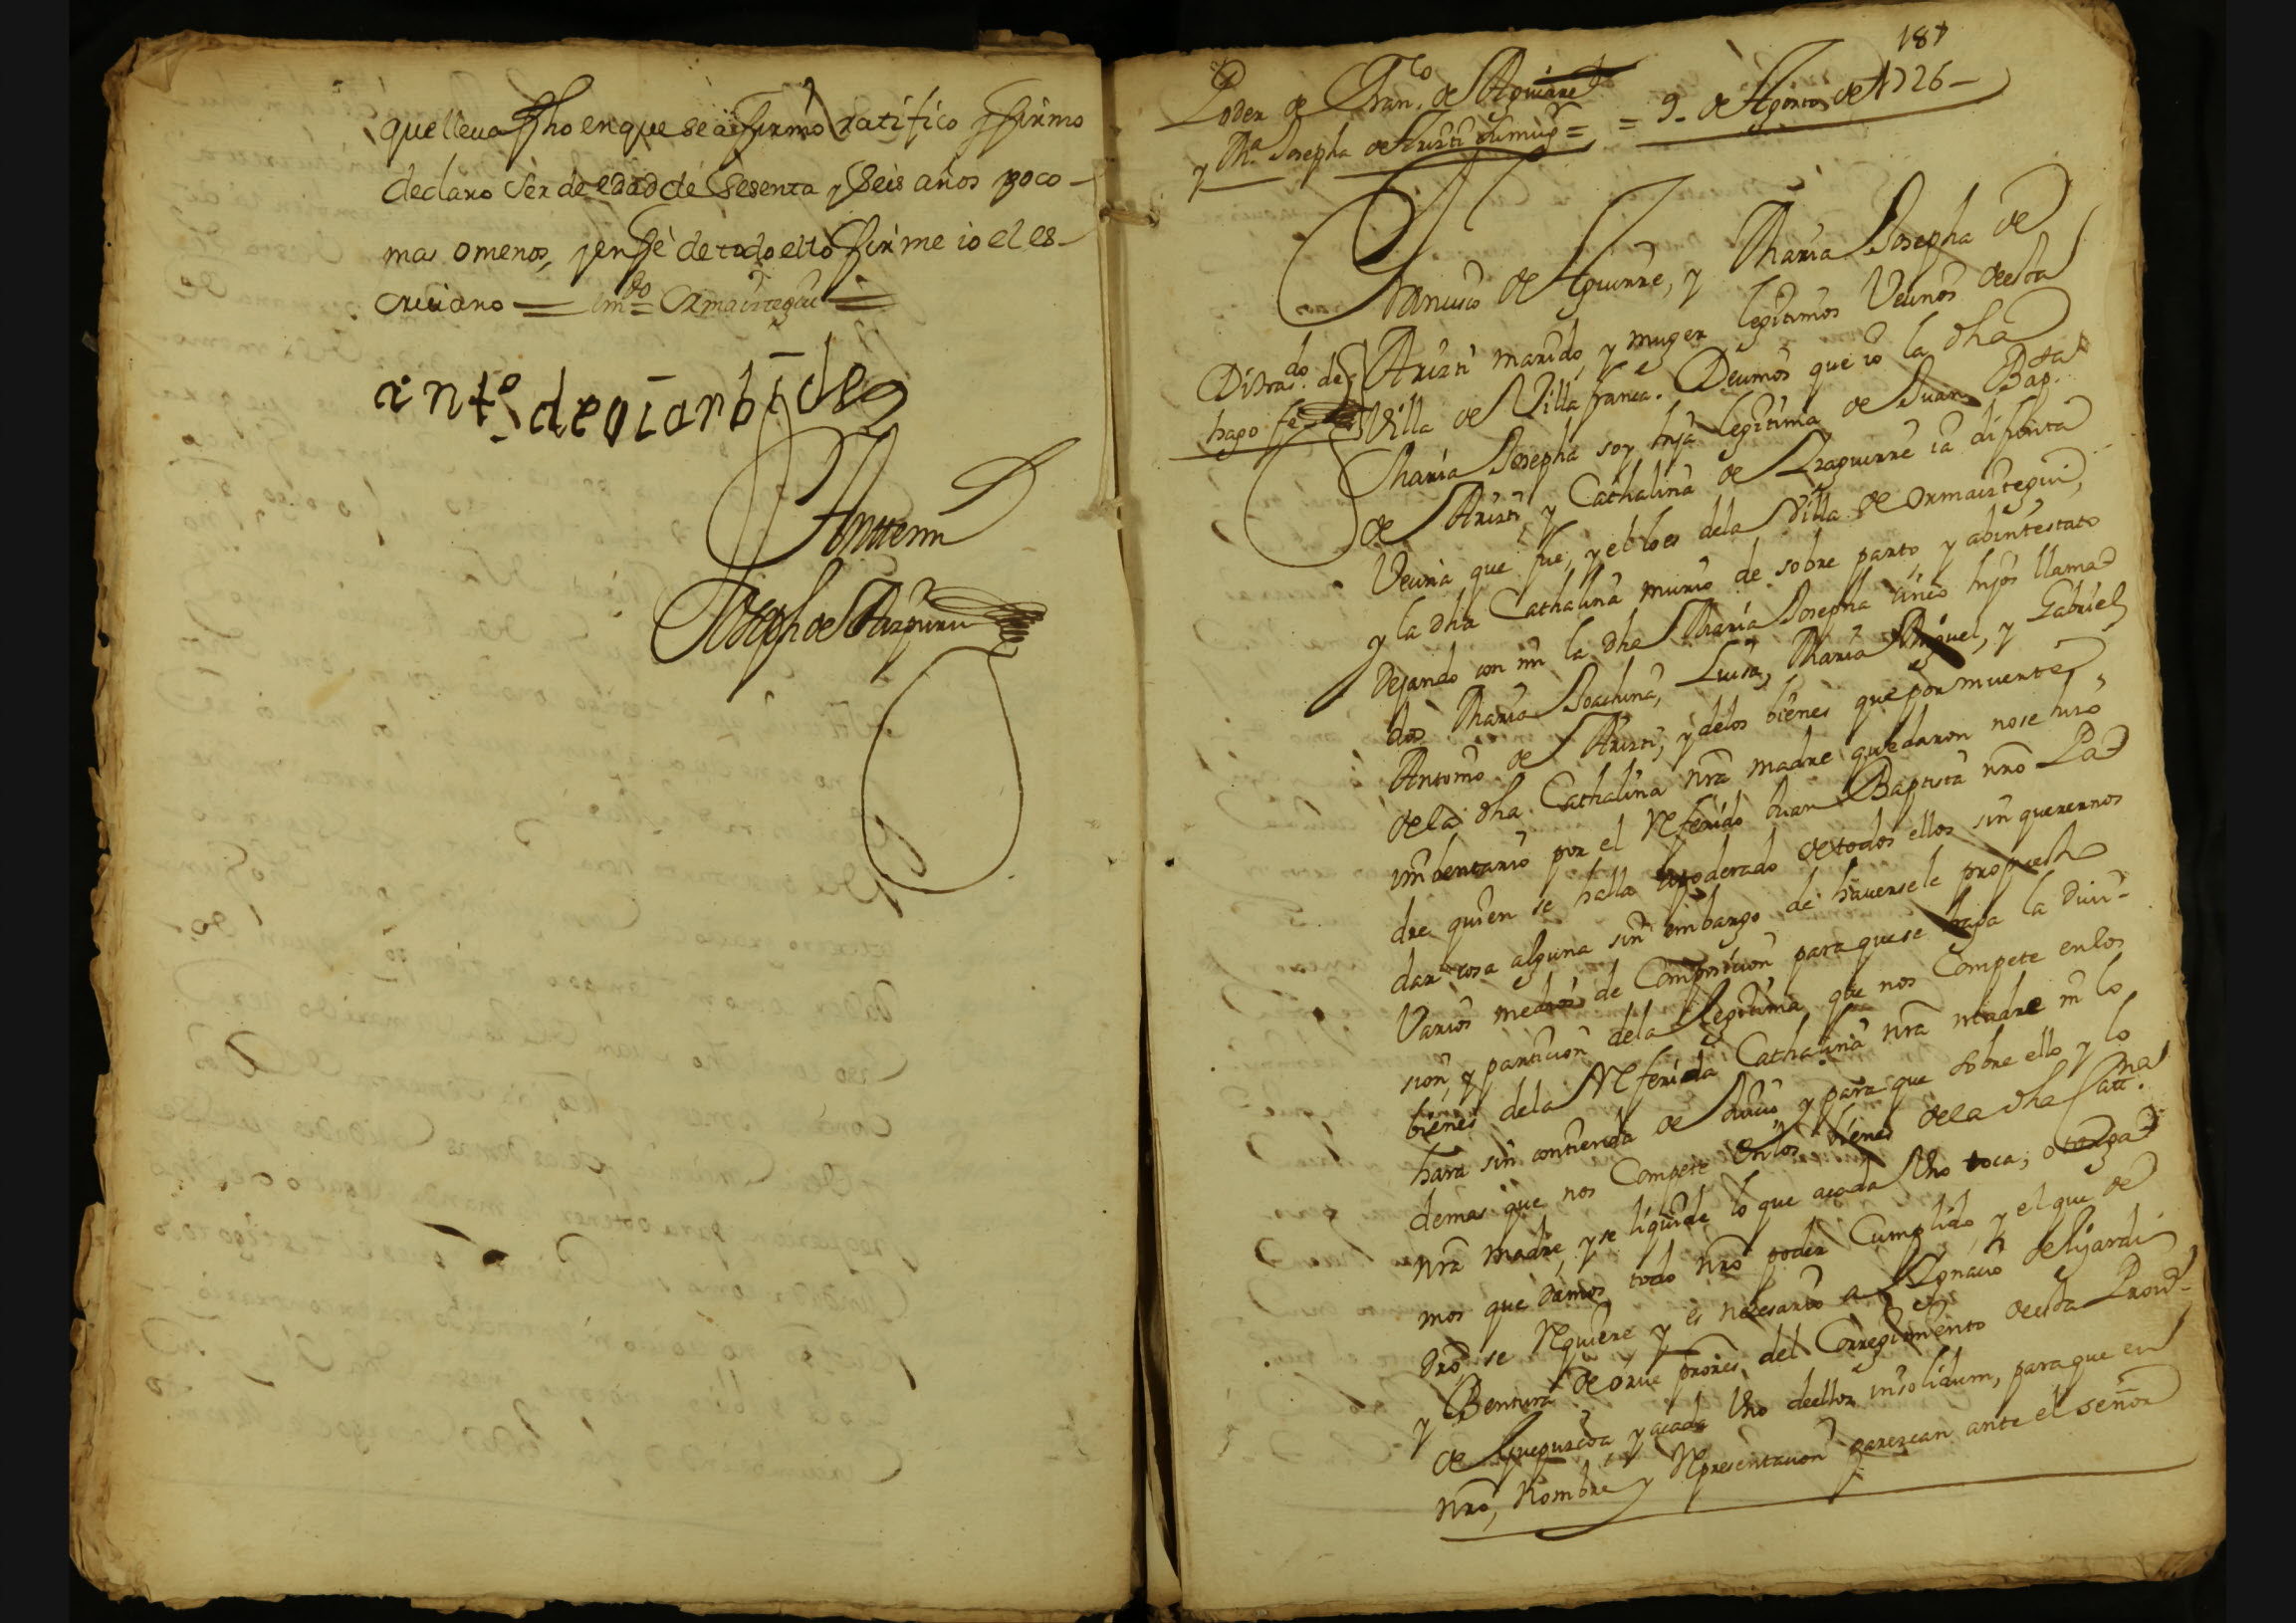 que lleva fho en que se afirmo ratifico y firmo
declaro ser de edad de sesenta y seis años poco
mas o menos, y en fe de todo ello firme io el es-
crivano = em.do Ormaiztegui =
antº de oiarbide
Antemi
Joseph de Aizpuru
187
Poder de Fran.co de Aguirre
y Mª Josepha de Arizti su mug.r = = 9 de Agosto de 1726
Francisco de Aguirre, y Maria Josepha de
Arizti marido, y muger legitimos Vecinos de esta
Villa de Villafranca. Decimos que io la dha
Disttrado. de
hago fe
Maria Josepha soy hija legitima de Juan Bap.ta
de Arizti, y Cathalina de Izaguirre ia difunta
Vecina que fue, y el lo es dela Villa de Ormaiztegui,
y la dha Cathalina murio de sobre parto, y abintestato
Dejando con mi la dha Maria Josepha cinco hijos llama
dos Maria Joachina, Luisa, Maria Miguel, y Gabriel
Antonio de Arizti, y delos bienes que por muerte
dela dha Cathalina nrã madre quedaron nose hizo
imbentario por el referido Juan Baptista nrõ Pa
dre quien se halla apoderado de todos ellos sin querernos
dar cosa alguna sin embargo de haversele propuesto
Varios medios de Composicion para que se haga la Divi-
sion, y particion dela legitima que nos Compete en los
bienes dela referida Cathalina nrã madre ni lo
hara sin contienda de Juicio y para que sobre ello y lo
demas que nos Compete en los bienes dela dha Catt.na
nrã madre, y se liquide lo que acada Uno toca, otorga
mos que damos todo nrõ poder Cumplido, y el que de
drõ se requiere y es nezesario a Ignacio de Lijardi
y Bentura de orue prores. del Corregimiento de esta Prov.a
de Guipuzcoa y acada Uno de ellos insolidum, para que en
nrõ, Nombre y representacion parezcan ante el señor